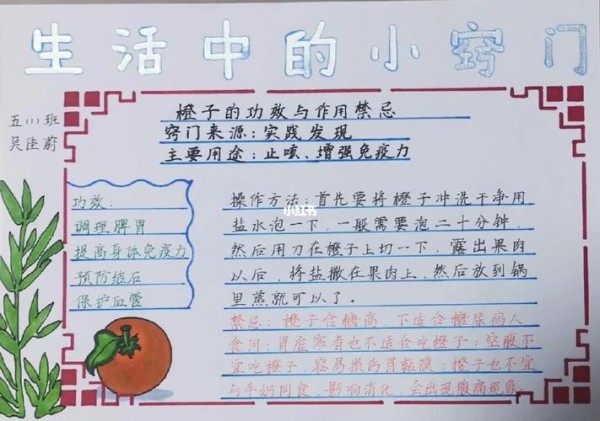 生活中的小窍门
五(1)班
吴
蔚
橙子的功效与作用禁忌
窍门来源:实践发现
主要用途:止咳、增强免疫力
功效:
调理脾胃
提高身体免疫力
预防结石
保护血管
操作方法:首先要将橙子冲洗干净用
盐水泡一下,一般需要泡二十分钟,
然后用刀在橙子上切一下,露出果肉
以后,将盐撒在果肉上,然后放到锅
里蒸就可以了。
禁忌:橙子含糖高,不适合糖尿病人
食用;胃虚寒者也不适合吃橙子;空腹不
宜吃橙子,容易
胃黏膜;橙子也不宜
与牛奶同食,影响消化,会出现腹痛现象。
小红书